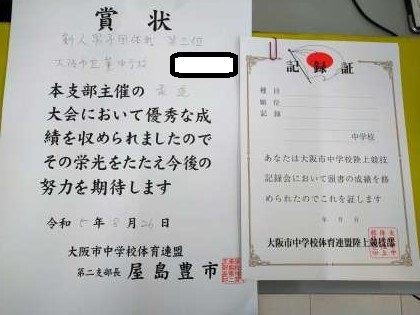 賞状
新人男子団体戦 第三位
本支部主催の
大会において優秀な成
績を収められましたので
その栄光をたたえ今後の
努力を期待します
令和5年8月26日
大阪市中学校体育連盟
第二支部長 屋島豊市
記録証
種目
順位
記録
中学校
あなたは大阪市中学校陸上競技
記録会において頭書の成績を修
められたのでこれを証します
年 月 日
大阪市中学校体育連盟陸上競技部